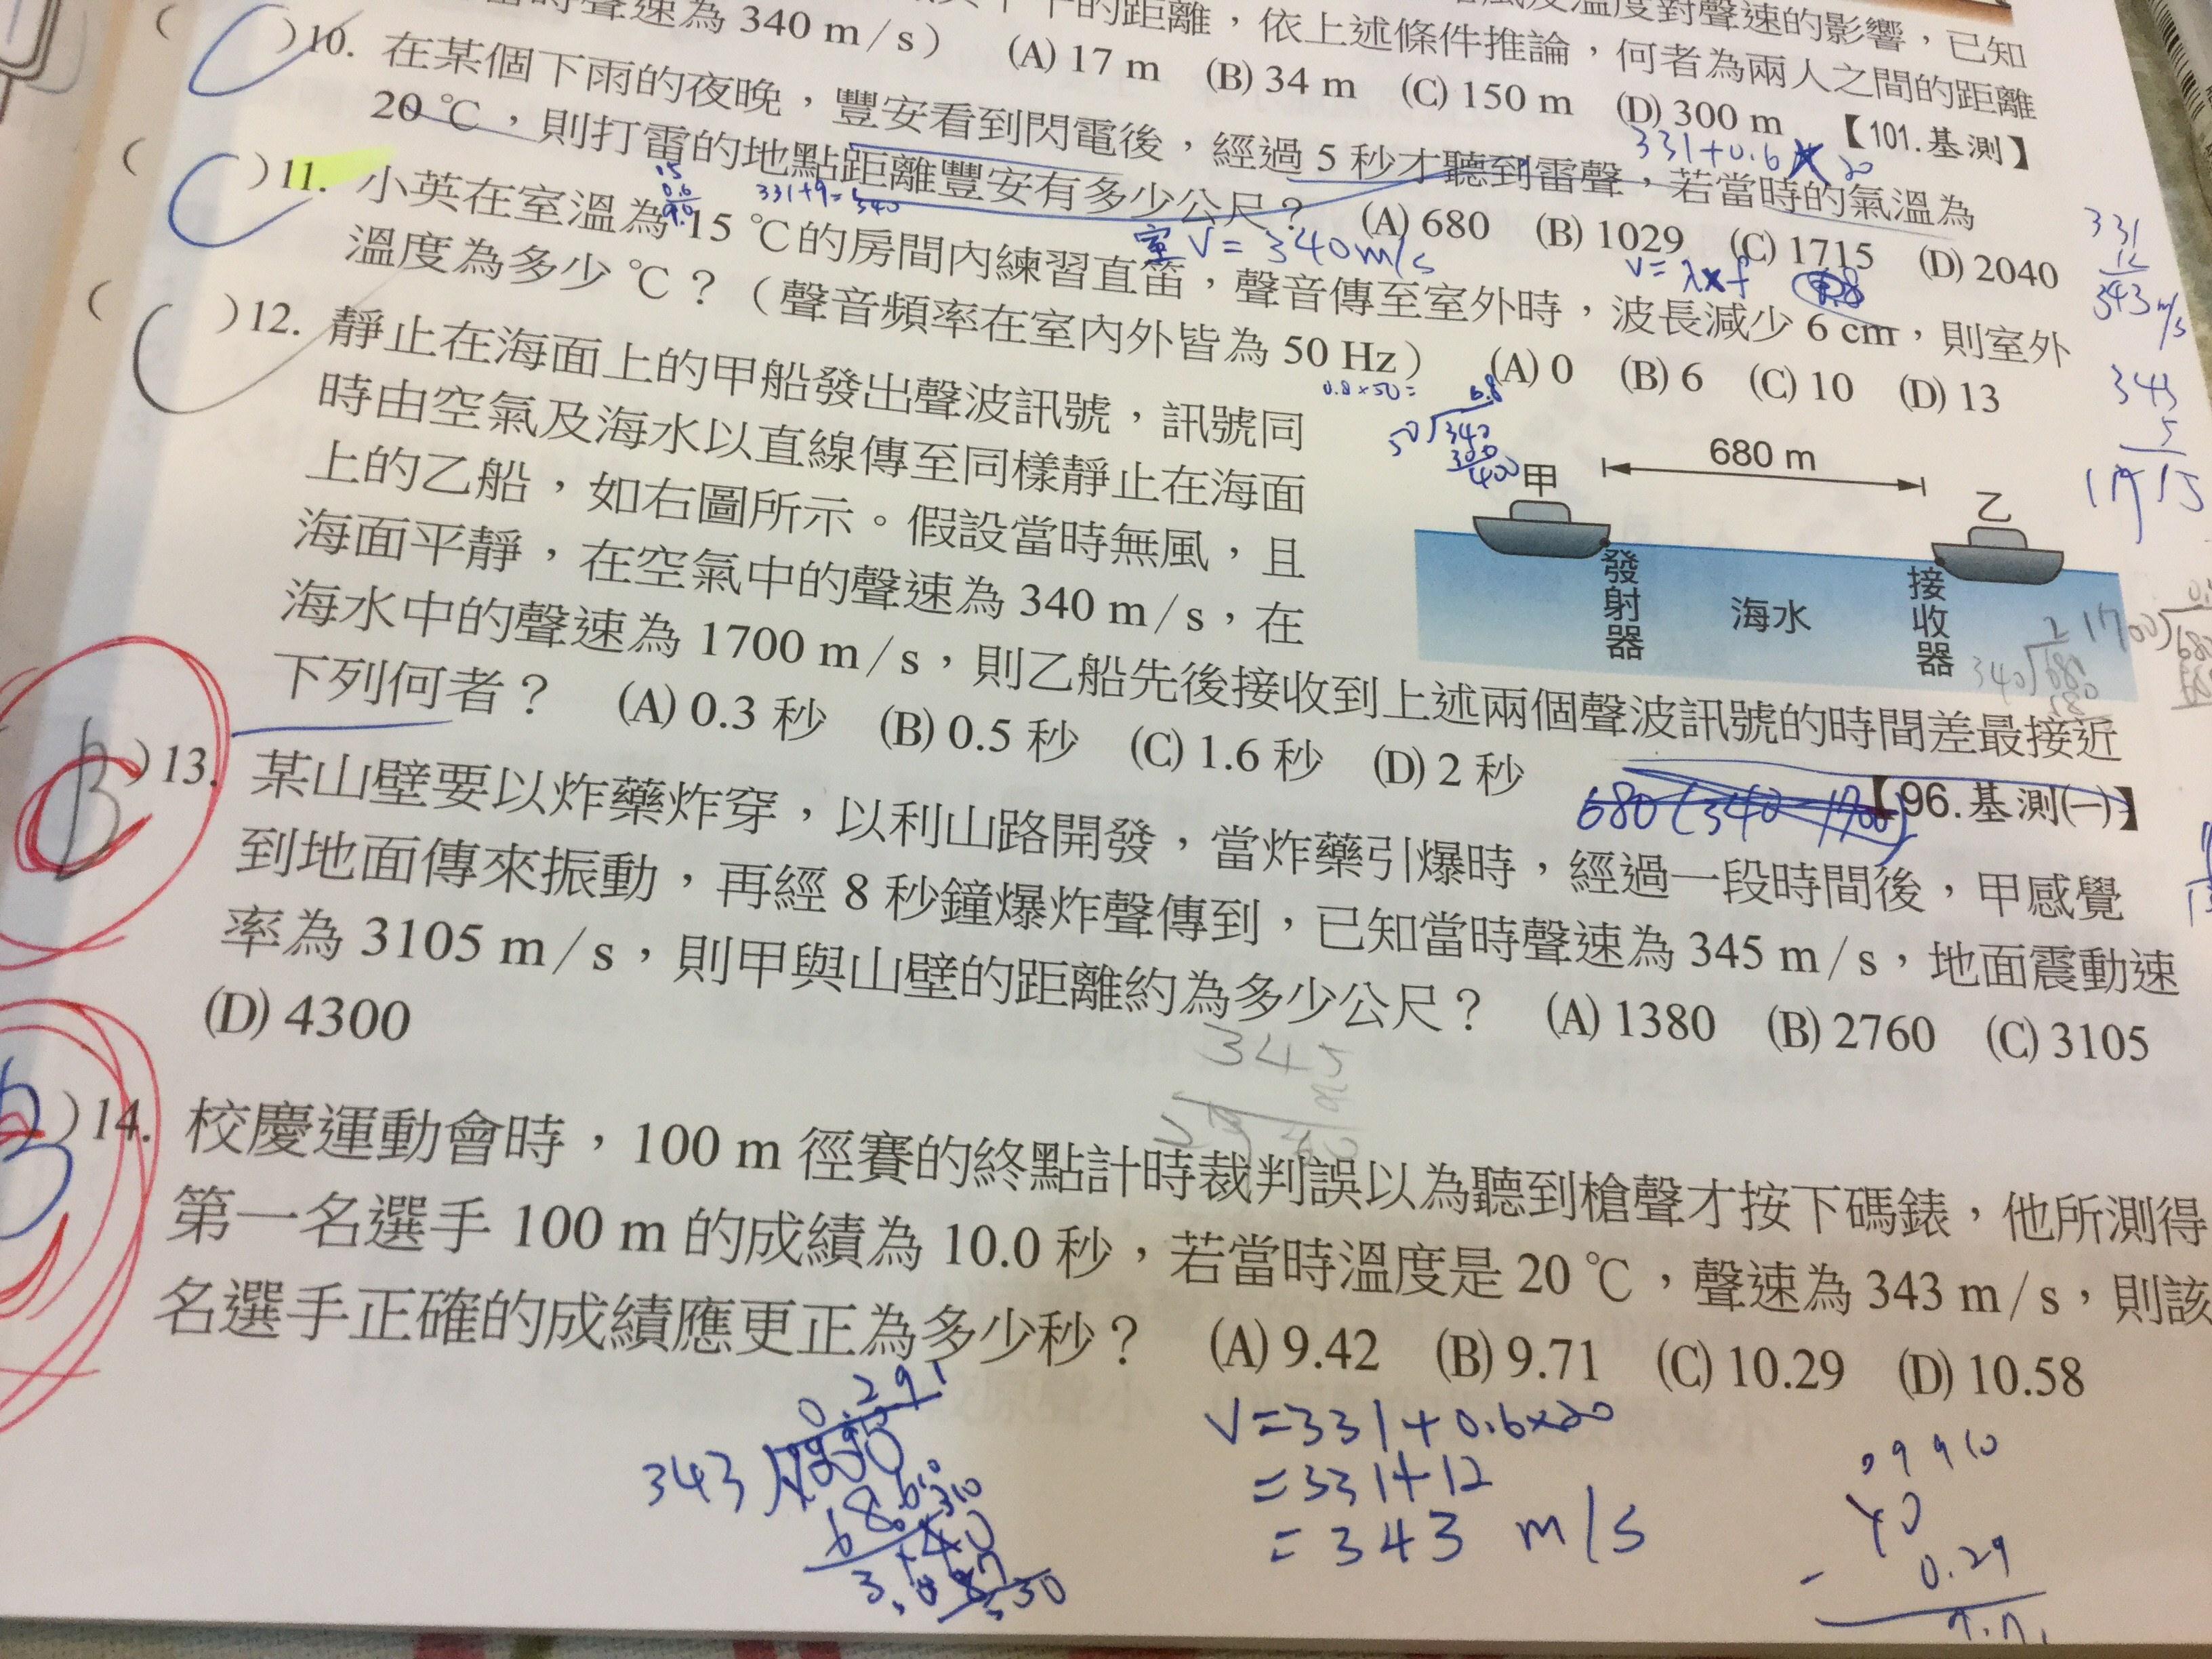 當時聲速為 340 m/s） (A) 17 m (B) 34 m (C) 150 m (D) 300 m 【101.基測】
的距離，依上述條件推論，何者為兩人之間的距離
風及溫度對聲速的影響，已知
( )10. 在某個下雨的夜晚，豐安看到閃電後，經過 5 秒才聽到雷聲，若當時的氣溫為
20 ℃，則打雷的地點距離豐安有多少公尺？ (A) 680 (B) 1029 (C) 1715 (D) 2040
( )11. 小英在室溫為 15 ℃的房間內練習直笛，聲音傳至室外時，波長減少 6 cm，則室外
溫度為多少 ℃？（聲音頻率在室內外皆為 50 Hz） (A) 0 (B) 6 (C) 10 (D) 13
( )12. 靜止在海面上的甲船發出聲波訊號，訊號同
時由空氣及海水以直線傳至同樣靜止在海面
上的乙船，如右圖所示。假設當時無風，且
海面平靜，在空氣中的聲速為 340 m/s，在
海水中的聲速為 1700 m/s，則乙船先後接收到上述兩個聲波訊號的時間差最接近
下列何者？ (A) 0.3 秒 (B) 0.5 秒 (C) 1.6 秒 (D) 2 秒
【96.基測(一)】
680 m
甲
乙
發射器
海水
接收器
)13. 某山壁要以炸藥炸穿，以利山路開發，當炸藥引爆時，經過一段時間後，甲感覺
到地面傳來振動，再經 8 秒鐘爆炸聲傳到，已知當時聲速為 345 m/s，地面震動速
率為 3105 m/s，則甲與山壁的距離約為多少公尺？ (A) 1380 (B) 2760 (C) 3105
(D) 4300
)14. 校慶運動會時，100 m 徑賽的終點計時裁判誤以為聽到槍聲才按下碼錶，他所測得
第一名選手 100 m 的成績為 10.0 秒，若當時溫度是 20 ℃，聲速為 343 m/s，則該
名選手正確的成績應更正為多少秒？ (A) 9.42 (B) 9.71 (C) 10.29 (D) 10.58
331+0.6×20
331+9=340
室 V=340m/s
V=λ×f
331
12
343 m/s
343
5
1715
0.8×50=
0.8
50
340
300
400
340
680
1700
345
0.291
343
V=331+0.6×20
=331+12
=343 m/s
0.29